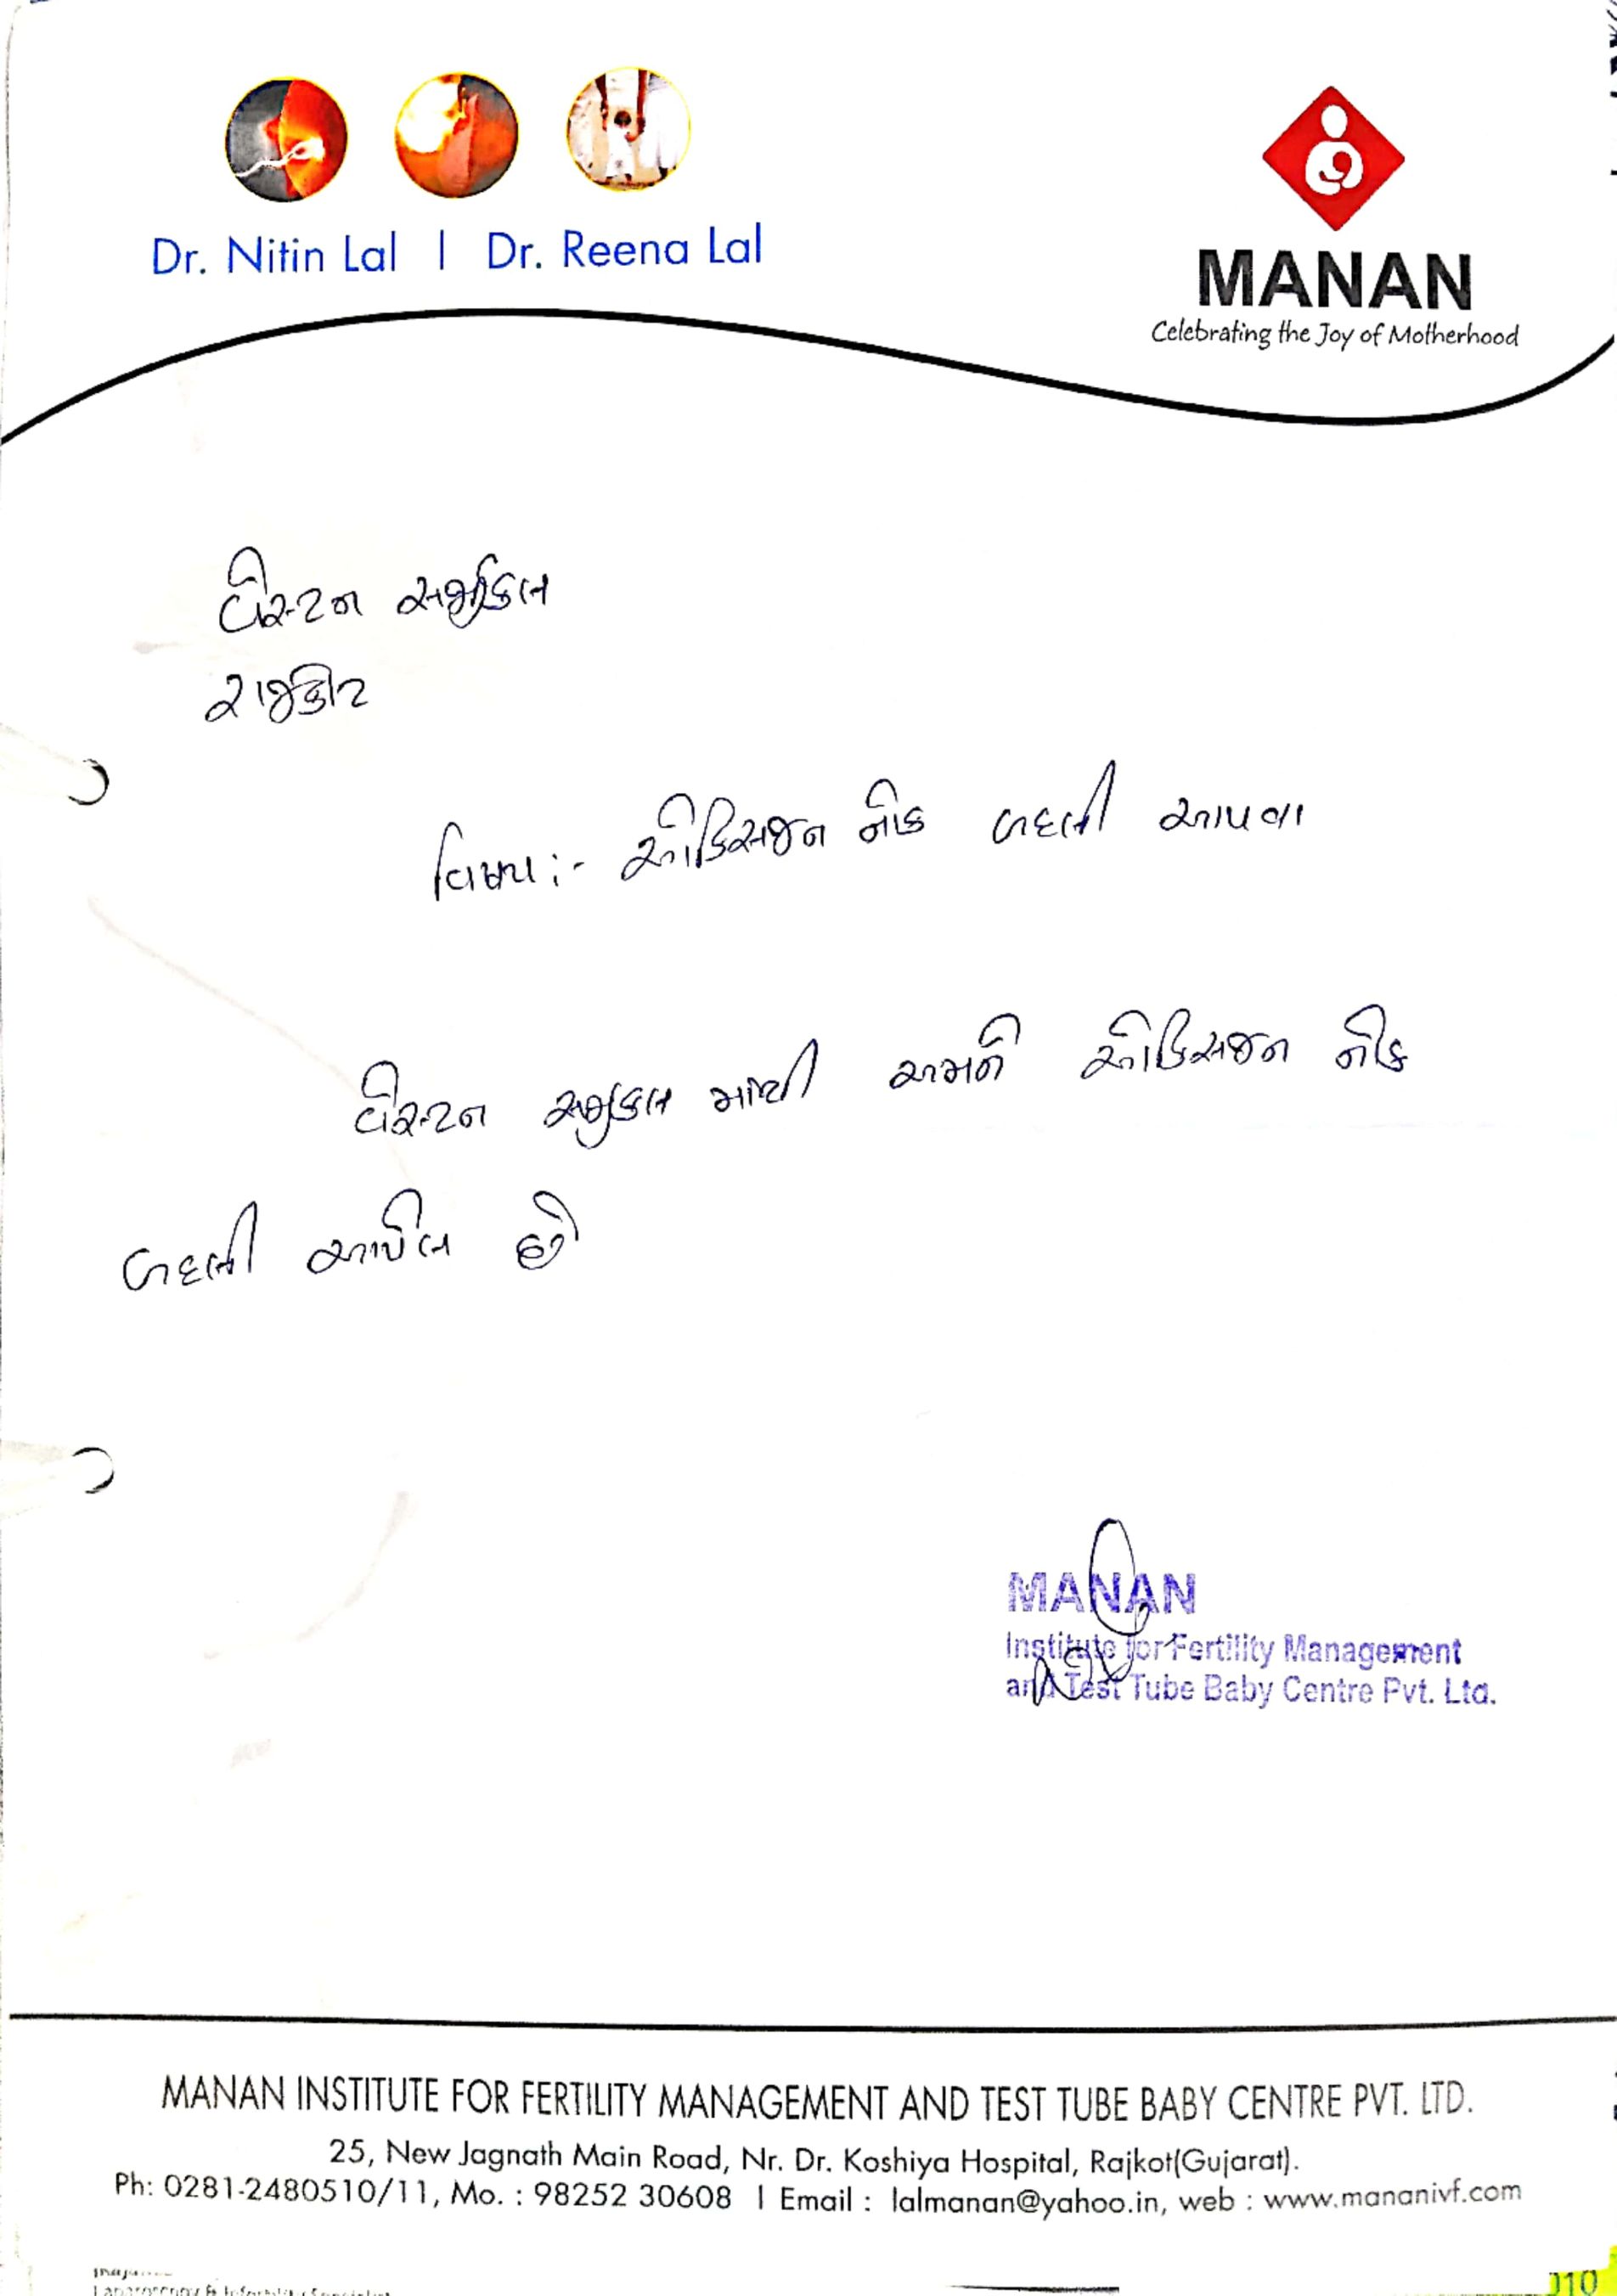 Dr. Nitin Lal | Dr. Reena Lal
MANAN
Celebrating the Joy of Motherhood
વેસ્ટન સર્જીકલ
રાજકોટ
વિષય :- ઓકિસજન નોક બદલી આપવા
વેસ્ટન સર્જીકલ માંથી અમને ઓકિસજન નોક
બદલી આપેલ છે
MANAN
Institute for Fertility Management
and Test Tube Baby Centre Pvt. Ltd.
MANAN INSTITUTE FOR FERTILITY MANAGEMENT AND TEST TUBE BABY CENTRE PVT. LTD.
25, New Jagnath Main Road, Nr. Dr. Koshiya Hospital, Rajkot(Gujarat).
Ph: 0281-2480510/11, Mo. : 98252 30608 | Email : lalmanan@yahoo.in, web : www.mananivf.com